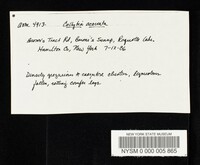 Collybia acervata
Brown's Tract Rd, Brown's Swamp, Raquette Lake,
Hamilton Co, New York 7-10-86
Densely gregarious to caespitose clusters,
fallen, rotting conifer logs.
NEW YORK STATE MUSEUM
NYSM 0 000 005 865